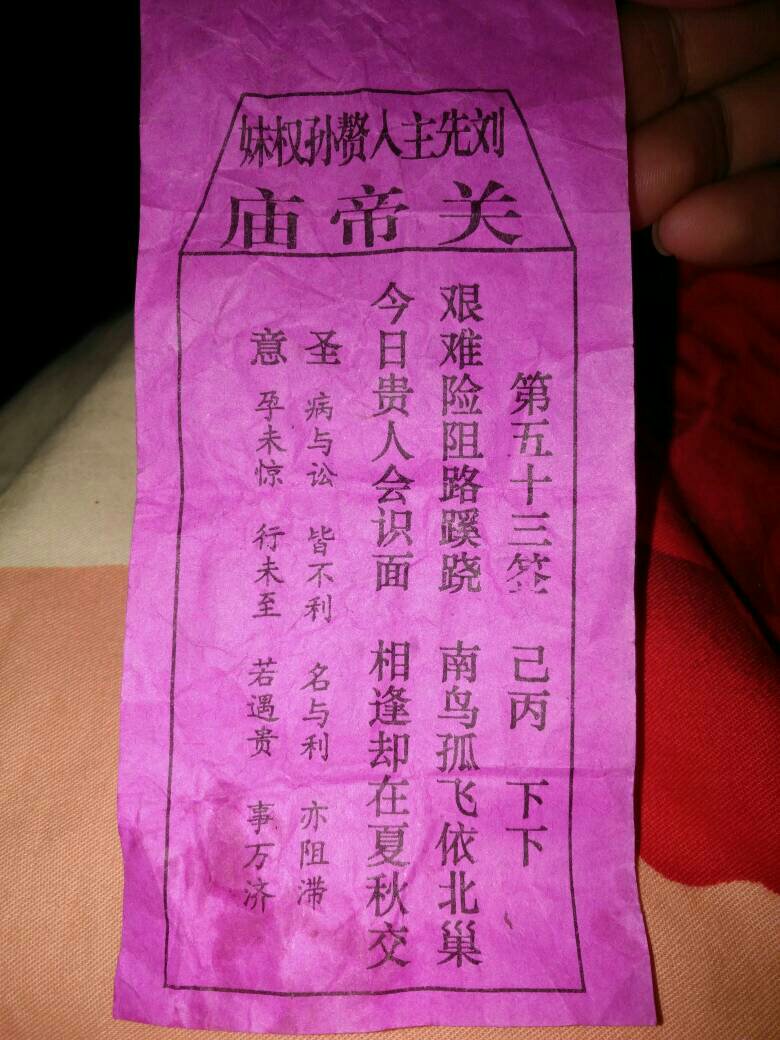 刘先主入赘孙权妹
关帝庙
第五十三签 己丙 下下
艰难险阻路蹊跷 南鸟孤飞依北巢
今日贵人会识面 相逢却在夏秋交
圣 病与讼 皆不利 名与利 亦阻滞
意 孕未惊 行未至 若遇贵 事万济